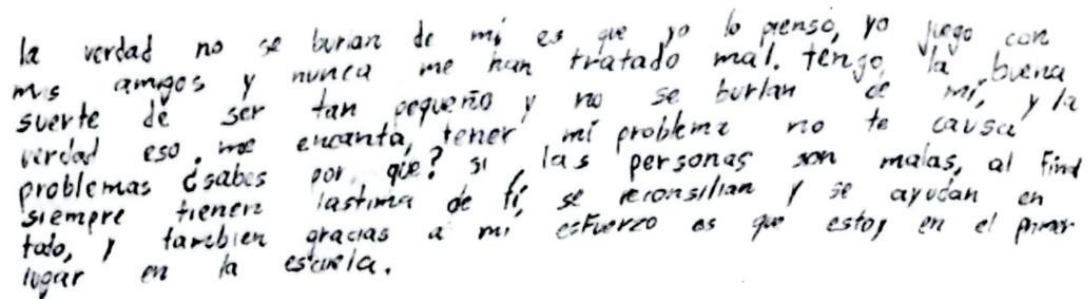 la verdad no se burlan de mí es que yo lo pienso, yo juego con
mis amigos y nunca me han tratado mal. tengo la buena
suerte de ser tan pequeño y no se burlan de mí, y la
verdad eso me encanta, tener mi problema no te causa
problemas ¿sabes por qué? si las personas son malas, al find
siempre tienen lastima de ti, se reconsilian y se ayudan en
todo, y tambien gracias a mi esfuerzo es que estoy en el primer
lugar en la escuela.